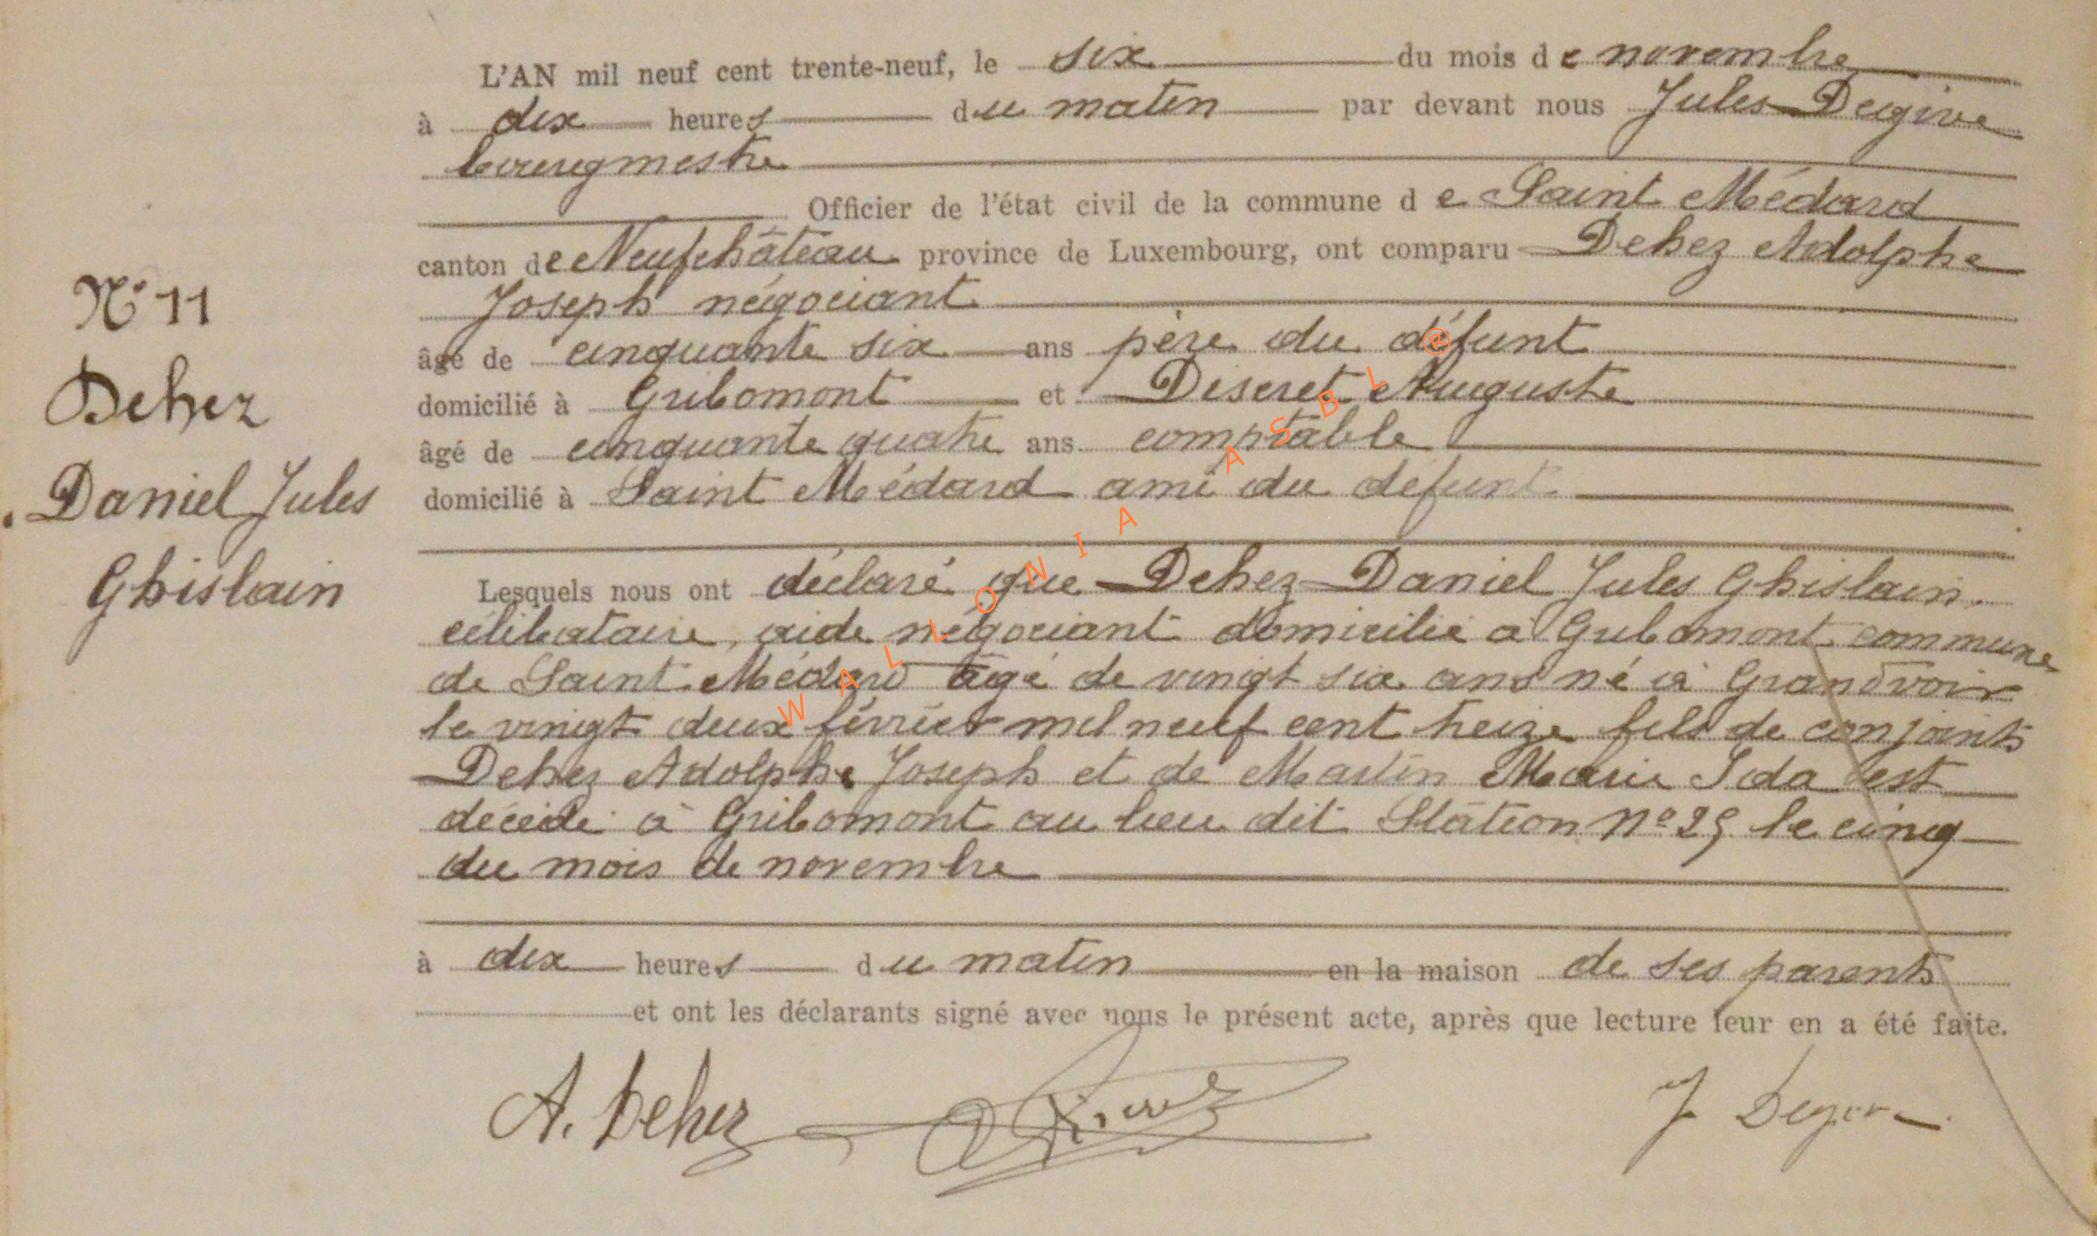 L'AN mil neuf cent trente-neuf, le six du mois de novembre
à dix heures du matin par devant nous Jules Degive
bourgmestre
Officier de l'état civil de la commune de Saint Médard
canton de Neufchâteau province de Luxembourg, ont comparu Dehez Adolphe
Joseph négociant
âgé de cinquante six ans père du défunt
domicilié à Gribomont et Diseret Auguste
âgé de cinquante quatre ans comptable
domicilié à Saint Médard ami du défunt
N° 11
Dehez
Daniel Jules
Ghislain
Lesquels nous ont déclaré que Dehez Daniel Jules Ghislain,
célibataire, aide négociant domicilié à Gribomont commune
de Saint Médard âgé de vingt six ans né à Grandvoir
le vingt deux février mil neuf cent treize fils de conjoints
Dehez Adolphe Joseph et de Martin Marie Ida est
décédé à Gribomont au lieu dit Station n° 25 le cinq
du mois de novembre
à dix heures du matin en la maison de ses parents
et ont les déclarants signé avec nous le présent acte, après que lecture leur en a été faite.
A. Dehez
J Degive
WALLONIA ASBL @